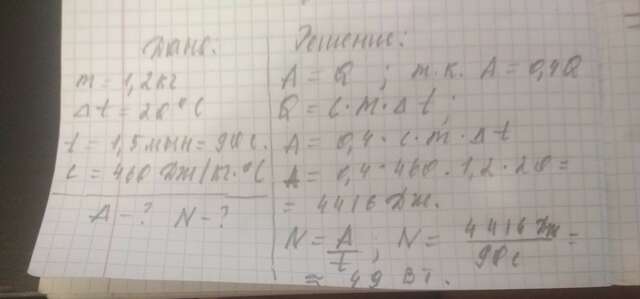 Дано:
m = 1,2кг
Δt = 20°C
t = 1,5мин = 90с.
c = 460 Дж/кг·°C
A - ? N - ?
Решение:
A = Q ; т.к. A = 0,4Q
Q = c·m·Δt ;
A = 0,4 · c · m · Δt
A = 0,4 · 460 · 1,2 · 20 =
= 4416 Дж.
N = A/t ; N = 4416 Дж/90с =
≈ 49 Вт.